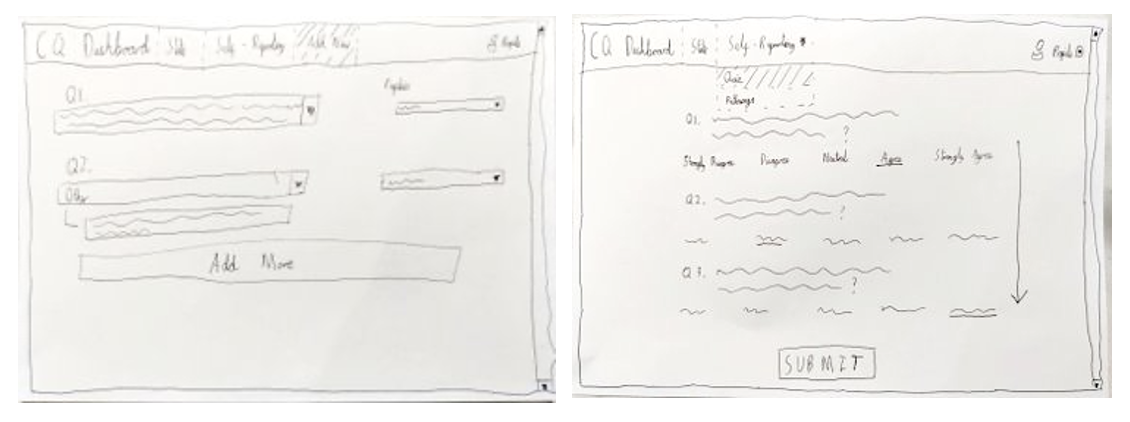 CQ Dashboard Stats Self-Reporting Add New Profile
Q1.
Replies
Q2.
Other
Add More
CQ Dashboard Stats Self-Reporting Profile
Quiz
Pathways
Q1.
?
Strongly Disagree Disagree Neutral Agree Strongly Agree
Q2.
?
Q3.
?
SUBMIT